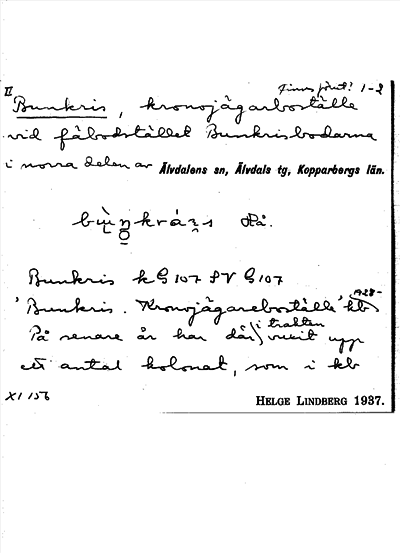 II Finns förut! 1-2
Bunkris, kronojägarboställe
vid fäbodstället Bunkrisbodarna
i norra delen av Älvdalens sn, Älvdals tg, Kopparbergs län.
Då.
Bunkris k G 107 SV G 107
"Bunkris. Kronojägareboställe" kb A28-
På senare år har där i trakten vuxit upp
ett antal kolonat, som i kb
XI 156 HELGE LINDBERG 1937.